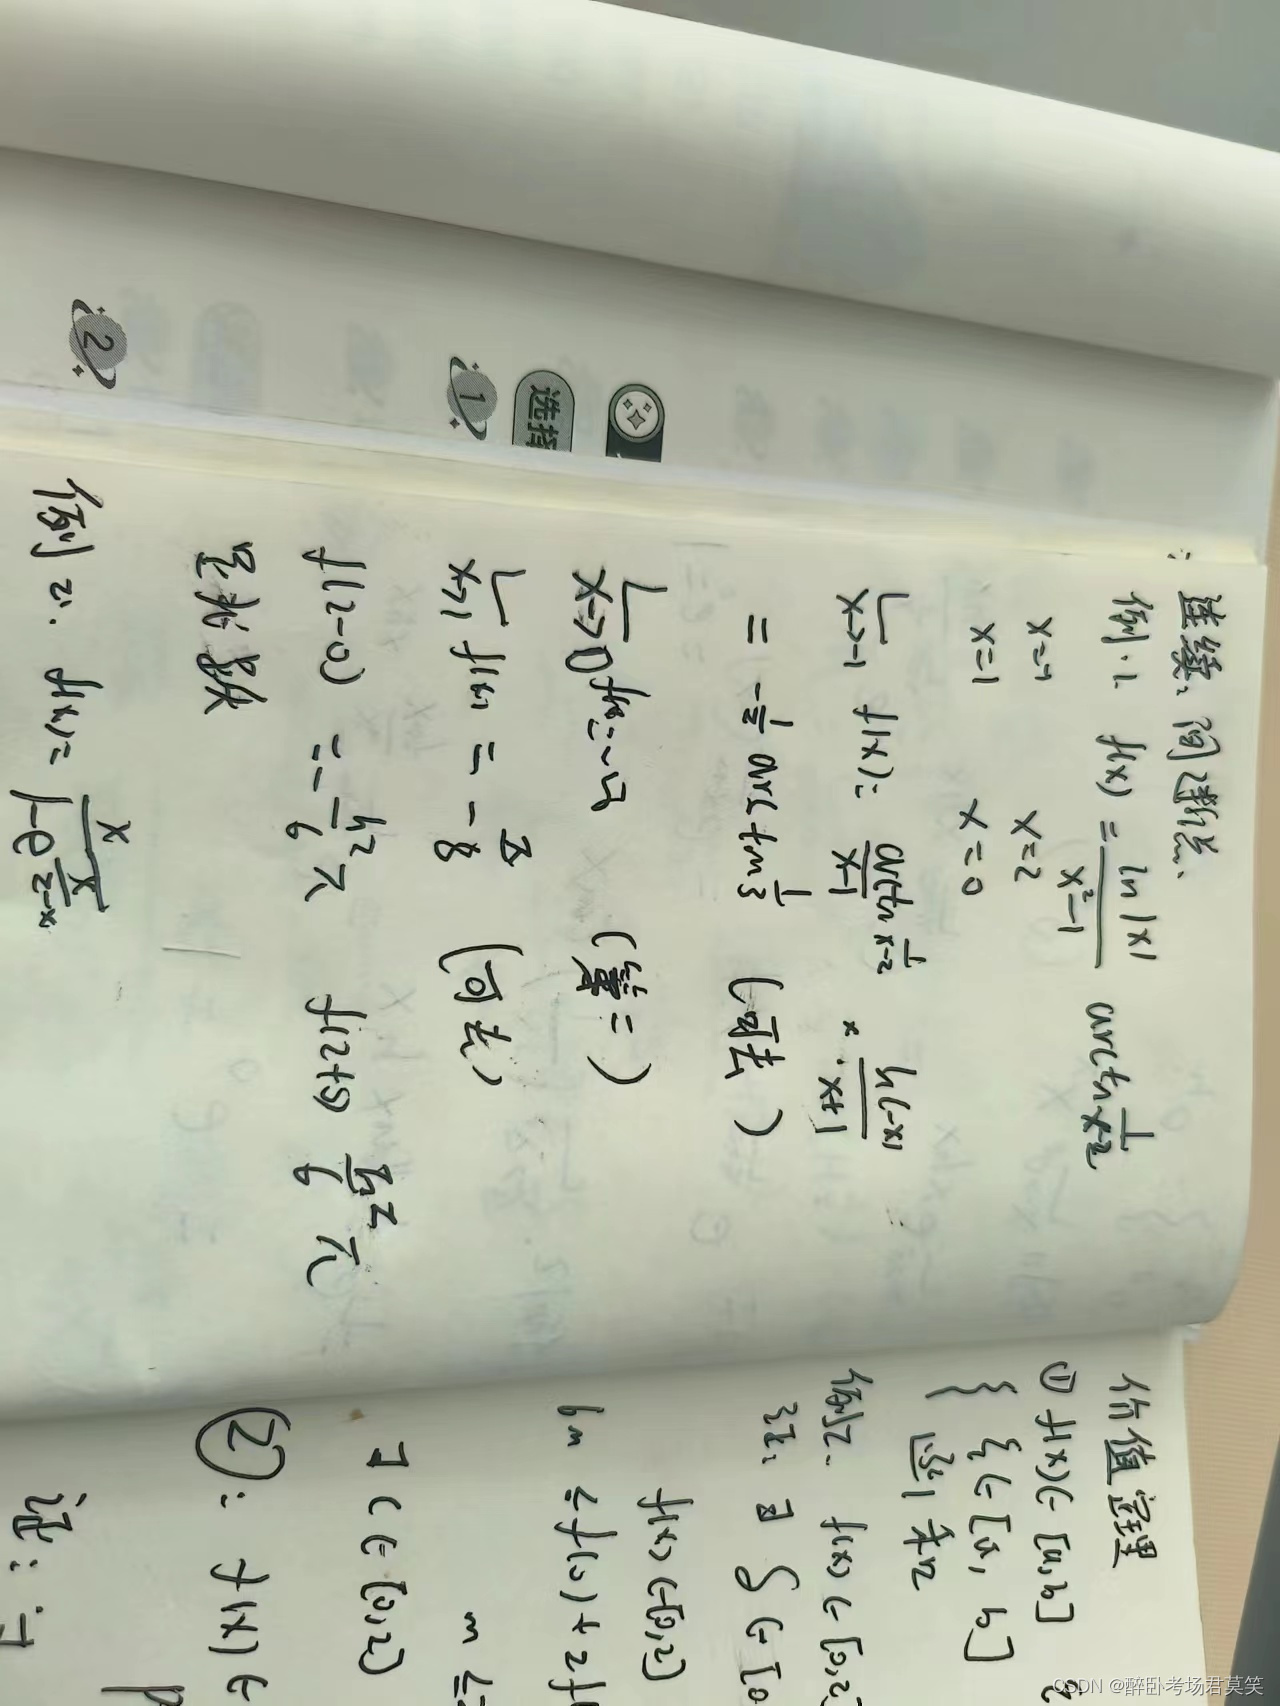 连续、间断点、
例1. f(x) = ln|x| / x²-1 arctan 1/x-2
x=-1 x=2
x=1 x=0
L x→-1 f(x) = arctan 1/x-2 / x-1 × ln(-x) / x+1
= -1/2 arctan 1/3 (可去)
L x→0 f(x) = -∞ (第二)
L x→1 f(x) = -π/8 (可去)
f(2-0) = -ln2/6 π f(2+0) ln2/6 π
是跳跃
例2. f(x) = x / 1-e^{x/2-x}
选择
1
2
介值定理
① f(x)∈[a,b]
{ ξ∈[a, b]
例2. f(x)∈[0,2
证. ∃ ξ∈[0
f(x)∈[0,2]
m ≤
6m ≤ f(0) + 2f(
∃ C∈[0,2]
②: f(x)∈
证: ∃
CSDN @醉卧考场君莫笑